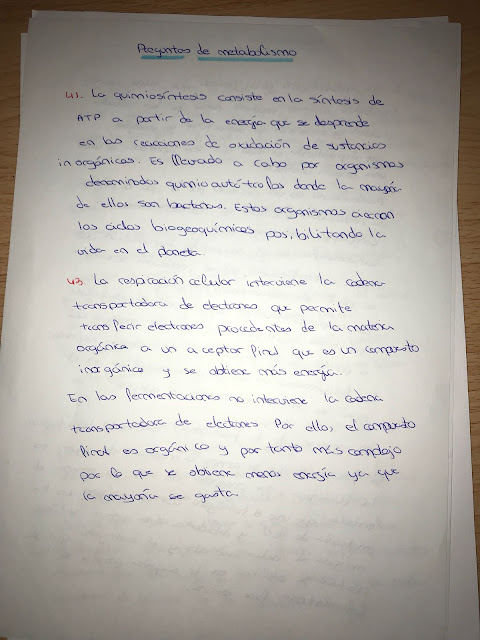 Preguntas de metabolismo
41. La quimiosíntesis consiste en la síntesis de
ATP a partir de la energía que se desprende
en las reacciones de oxidación de sustancias
inorgánicas. Es llevado a cabo por organismos
denominados quimioautótrofos donde la mayoría
de ellos son bacterias. Estos organismos cierran
los ciclos biogeoquímicos posibilitando la
vida en el planeta.
43. La respiración celular interviene la cadena
transportadora de electrones que permite
transferir electrones procedentes de la materia
orgánica a un aceptor final que es un compuesto
inorgánico y se obtiene más energía.
En las fermentaciones no interviene la cadena
transportadora de electrones. Por ello, el compuesto
final es orgánico y por tanto más complejo
por lo que se obtiene menos energía ya que
la mayoría se gasta.